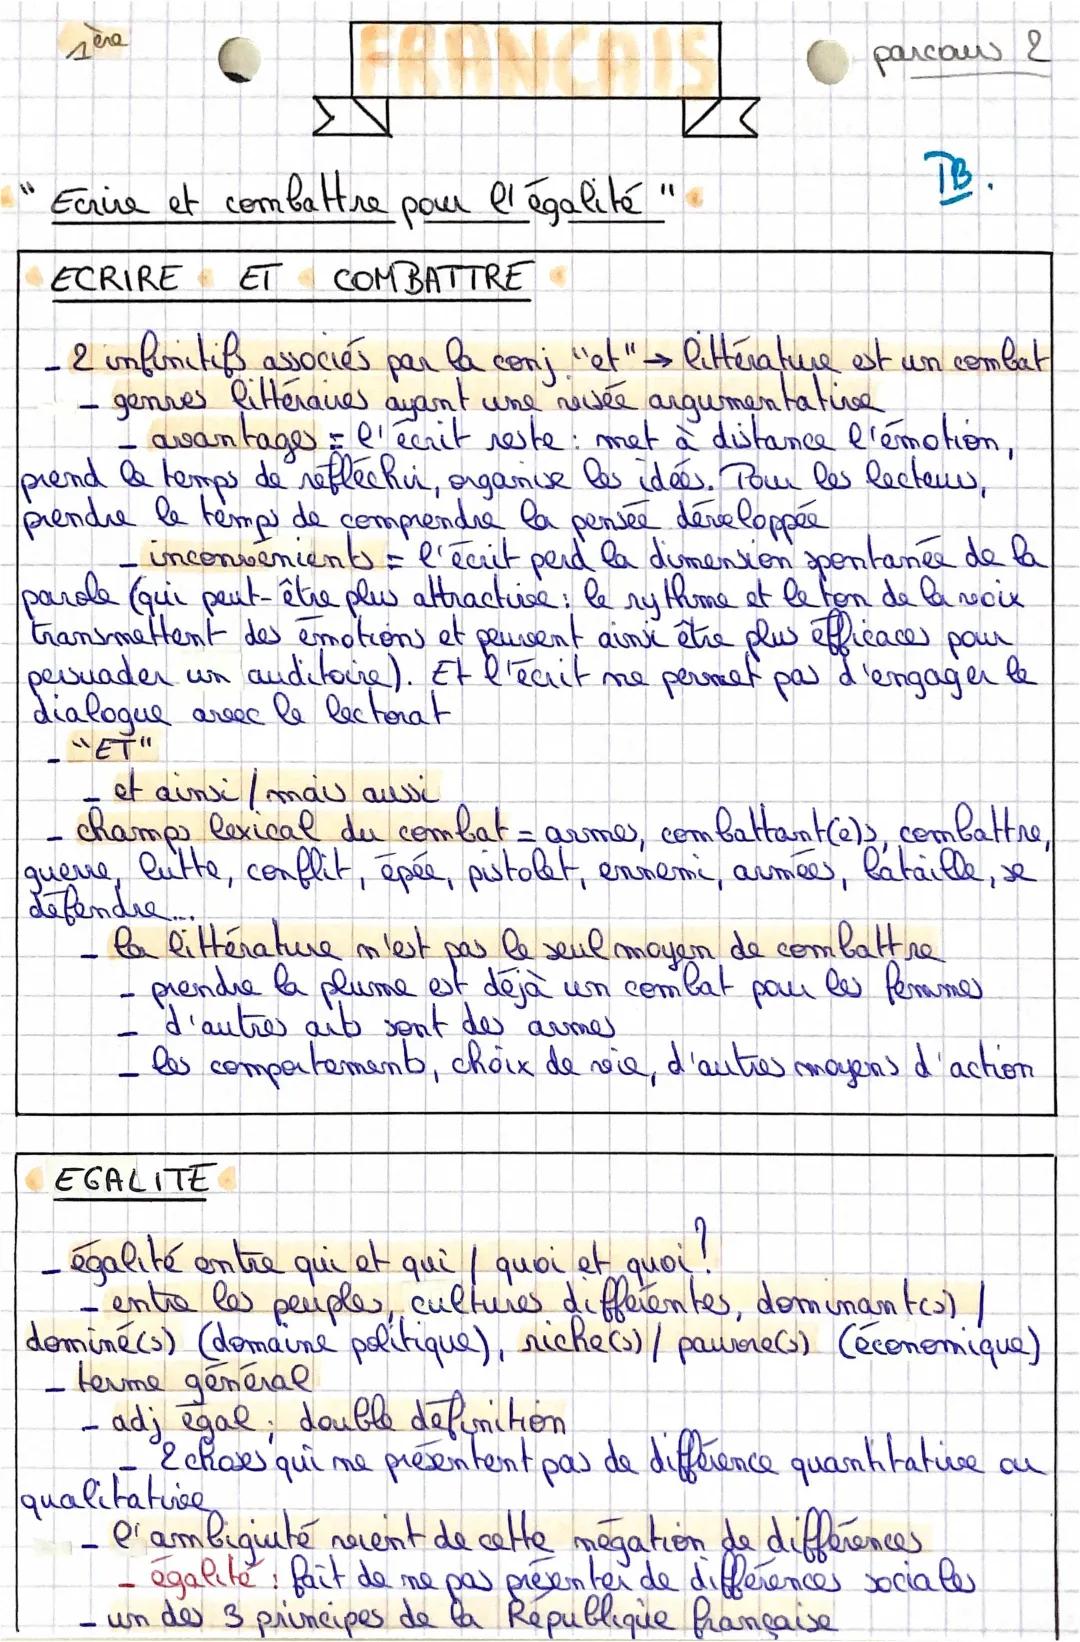 1ère
FRANCAIS
parcours 2
TB.
" Ecrire et combattre pour l'égalité "
ECRIRE ET COMBATTRE
- 2 infinitifs associés par la conj "et" → littérature est un combat
- genres littéraires ayant une visée argumentative
- avantages = l'écrit reste : met à distance l'émotion,
prend le temps de réfléchir, organise les idées. Pour les lecteurs,
prendre le temps de comprendre la pensée développée
- inconvénients = l'écrit perd la dimension spontanée de la
parole (qui peut-être plus attractive : le rythme et le ton de la voix
transmettent des émotions et peuvent ainsi être plus efficaces pour
persuader un auditoire). Et l'écrit ne permet pas d'engager le
dialogue avec le lectorat
- "ET"
- et ainsi / mais aussi
- champs lexical du combat = armes, combattant(e)s, combattre,
guerre, lutte, conflit, épée, pistolet, ennemi, armées, bataille, se
défendre...
- la littérature n'est pas le seul moyen de combattre
- prendre la plume est déjà un combat pour les femmes
- d'autres arts sont des armes
- les comportements, choix de vie, d'autres moyens d'action
EGALITE
- égalité entre qui et qui / quoi et quoi ?
- entre les peuples, cultures différentes, dominant(s) /
dominé(s) (domaine politique), riche(s) / pauvre(s) (économique)
- terme général
- adj égal ; double définition
- 2 choses qui ne présentent pas de différence quantitative ou
qualitative
- l'ambiguité revient de cette négation de différences
- égalité : fait de ne pas présenter de différences sociales
- un des 3 principes de la République française